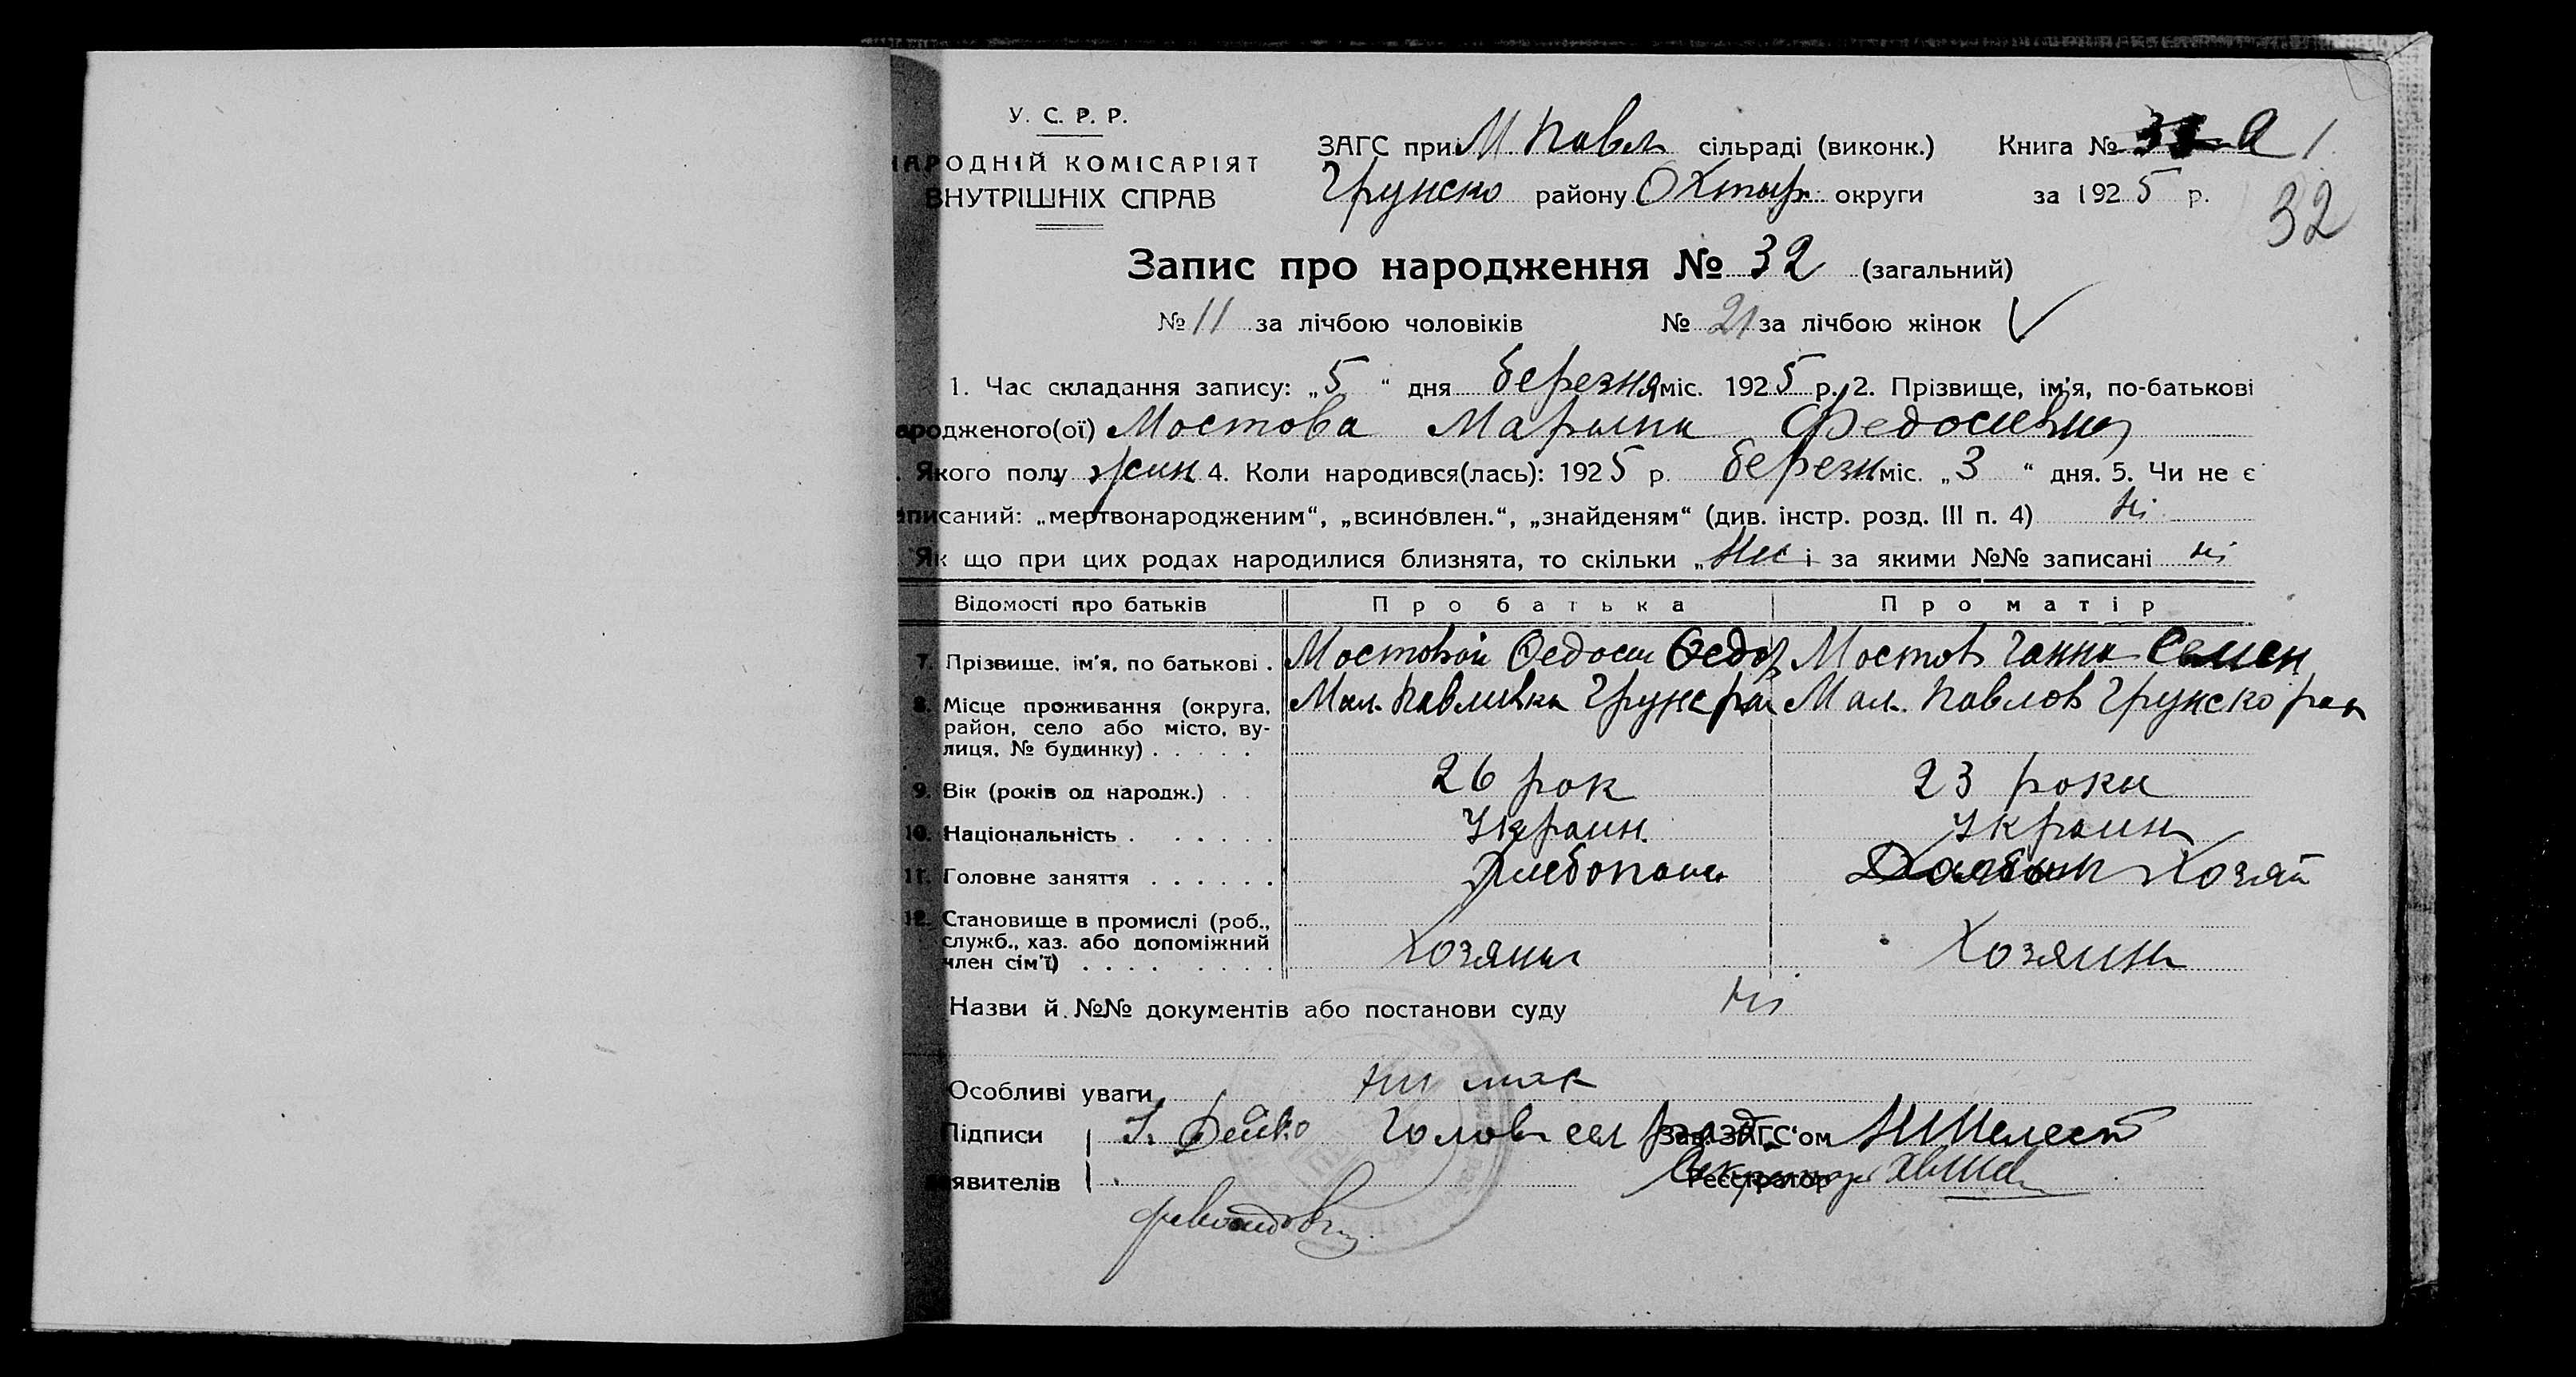 У. С. Р. Р.
НАРОДНІЙ КОМІСАРІЯТ
ВНУТРІШНІХ СПРАВ
ЗАГС при М. Павл сільраді (виконк.) Книга № А 1
Грунско району Охтыр. округи за 1925 р.
32
Запис про народження № 32 (загальний)
№ 11 за лічбою чоловіків № 21 за лічбою жінок
1. Час складання запису: „5" дня березня міс. 1925 р. 2. Прізвище, ім'я, по-батькові
ародженого(ої) Мостова Марына Федосиевна
. Якого полу жин 4. Коли народився(лась): 1925 р. березн міс. „3" дня. 5. Чи не є
аписаний: „мертвонародженим", „всиновлен.", „знайденям" (див. інстр. розд. III п. 4) ні
Як що при цих родах народилися близнята, то скільки „ і за якими №№ записані ні
Відомості про батьків Про батька Про матір
7. Прізвище, ім'я, по батькові . Мостовой Федоси Федор Мостов Ганна Семен
8. Місце проживання (округа, район, село або місто, вулиця, № будинку) . . . . . Мал. Павливка Грунс рай Мал. Павлов Грунско рай
9. Вік (років од народж.) . . 26 рок 23 роки
10. Національність . . . . . . Украин. Украин
11. Головне заняття . . . . . . Хлебопаш Хозяй
12. Становище в промислі (роб., служб., хаз. або допоміжний член сім'ї) . . . . . . . . Хозяин Хозяин
Назви й №№ документів або постанови суду ні
Особливі уваги
Підписи І. Дейко Голов сел рад. Зав. ЗАГС'ом Шелест
заявителів Секретарь Реєстратор